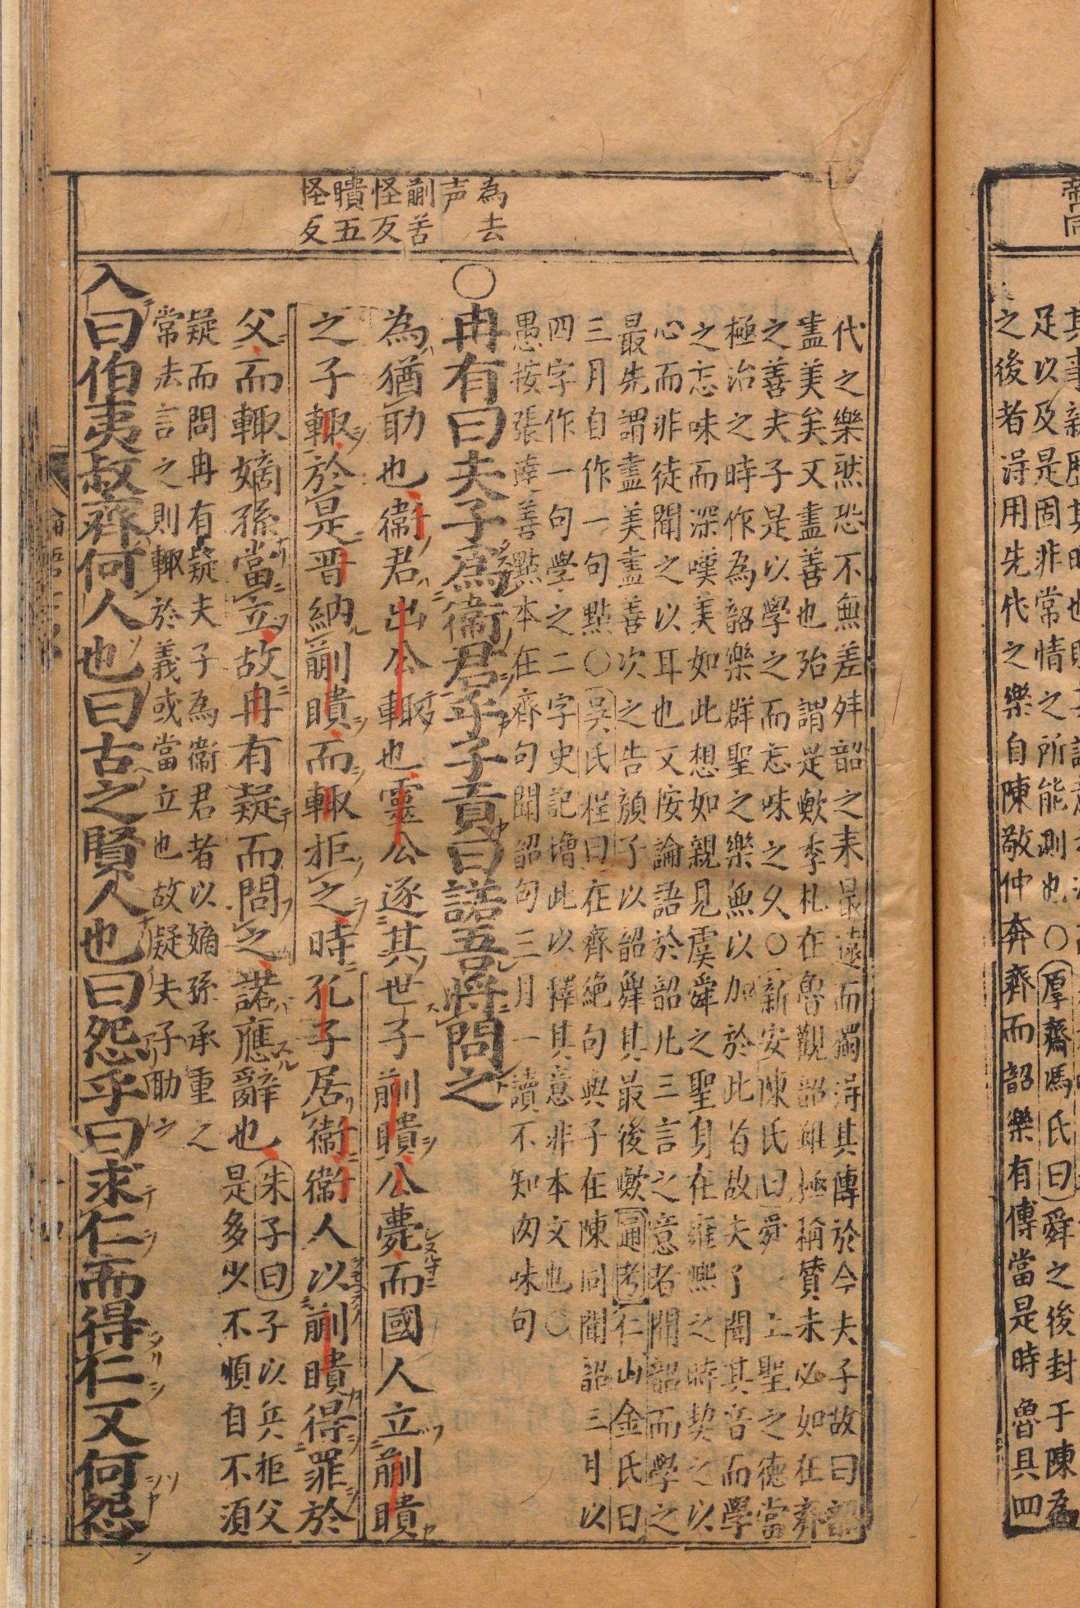 足以及是固非常情之所能測也○厚齋馮氏曰舜之後封于陳為
之後者得用先代之樂自陳敬仲奔齊而韶樂有傳當是時魯具四
為去
声
蒯苦
怪反
聵五
怪反
代之樂然恐不無差舛韶之来最遠而獨得其傳於今夫子故曰韶
盡美矣又盡善也殆謂是歟季札在魯觀韶雖極稱賛未必如在齊
之善夫子是以學之而忘味之久○新安陳氏曰舜上聖之德當
極治之時作為韶樂群聖之樂無以加於此者故夫子聞其音而學
之忘味而深嘆美如此想如親見虞舜之聖身在雍熙之時契之以
心而非徒聞之以耳也又按論語於韶凡三言之意者聞韶而學之
最先謂盡美盡善次之告顔子以韶舞其最後歟通考仁山金氏曰
三月自作一句點○吳氏程曰在齊絶句與子在陳同聞韶三月以
四字作一句學之二字史記增此以釋其意非本文也○
愚按張達善點本在齊句聞韶句三月一讀不知肉味句
○冉有曰夫子為衛君乎子貢曰諾吾將問之
為猶助也衛君出公輒也靈公逐其世子蒯聵公薨而國人立蒯聵
之子輒於是晋納蒯聵而輒拒之時孔子居衛衛人以蒯聵得罪於
父而輒嫡孫當立故冉有疑而問之諾應辭也朱子曰子以兵拒父
是多少不順自不須
疑而問冉有疑夫子為衛君者以嫡孫承重之
常法言之則輒於義或當立也故疑夫子助之
入曰伯夷叔齊何人也曰古之賢人也曰怨乎曰求仁而得仁又何怨